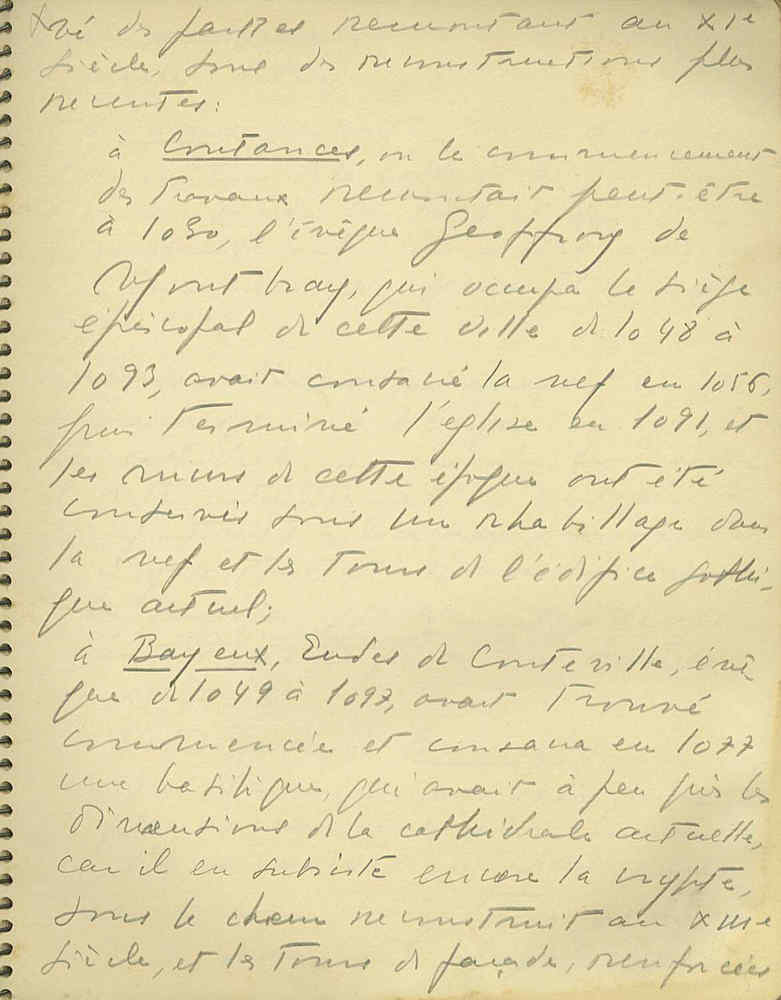 vé des parties remontant au XIe
siècle, sous des reconstructions plus
récentes :
à Coutances, où le commencement
des travaux remontait peut-être
à 1030, l'évêque Geoffroy de
Montbray, qui occupa le siège
épiscopal de cette ville de 1048 à
1093, avait consacré la nef en 1056,
puis terminé l'église en 1091, et
les murs de cette époque ont été
conservés sous un rhabillage dans
la nef et les tours de l'édifice gothi-
que actuel ;
à Bayeux, Eudes de Conteville, évê
que de 1049 à 1097, avait trouvé
commencée et consacra en 1077
une basilique, qui avait à peu près les
dimensions de la cathédrale actuelle,
car il en subsiste encore la crypte,
sous le chœur reconstruit au XIIIe
siècle, et les tours de façade, renforcées